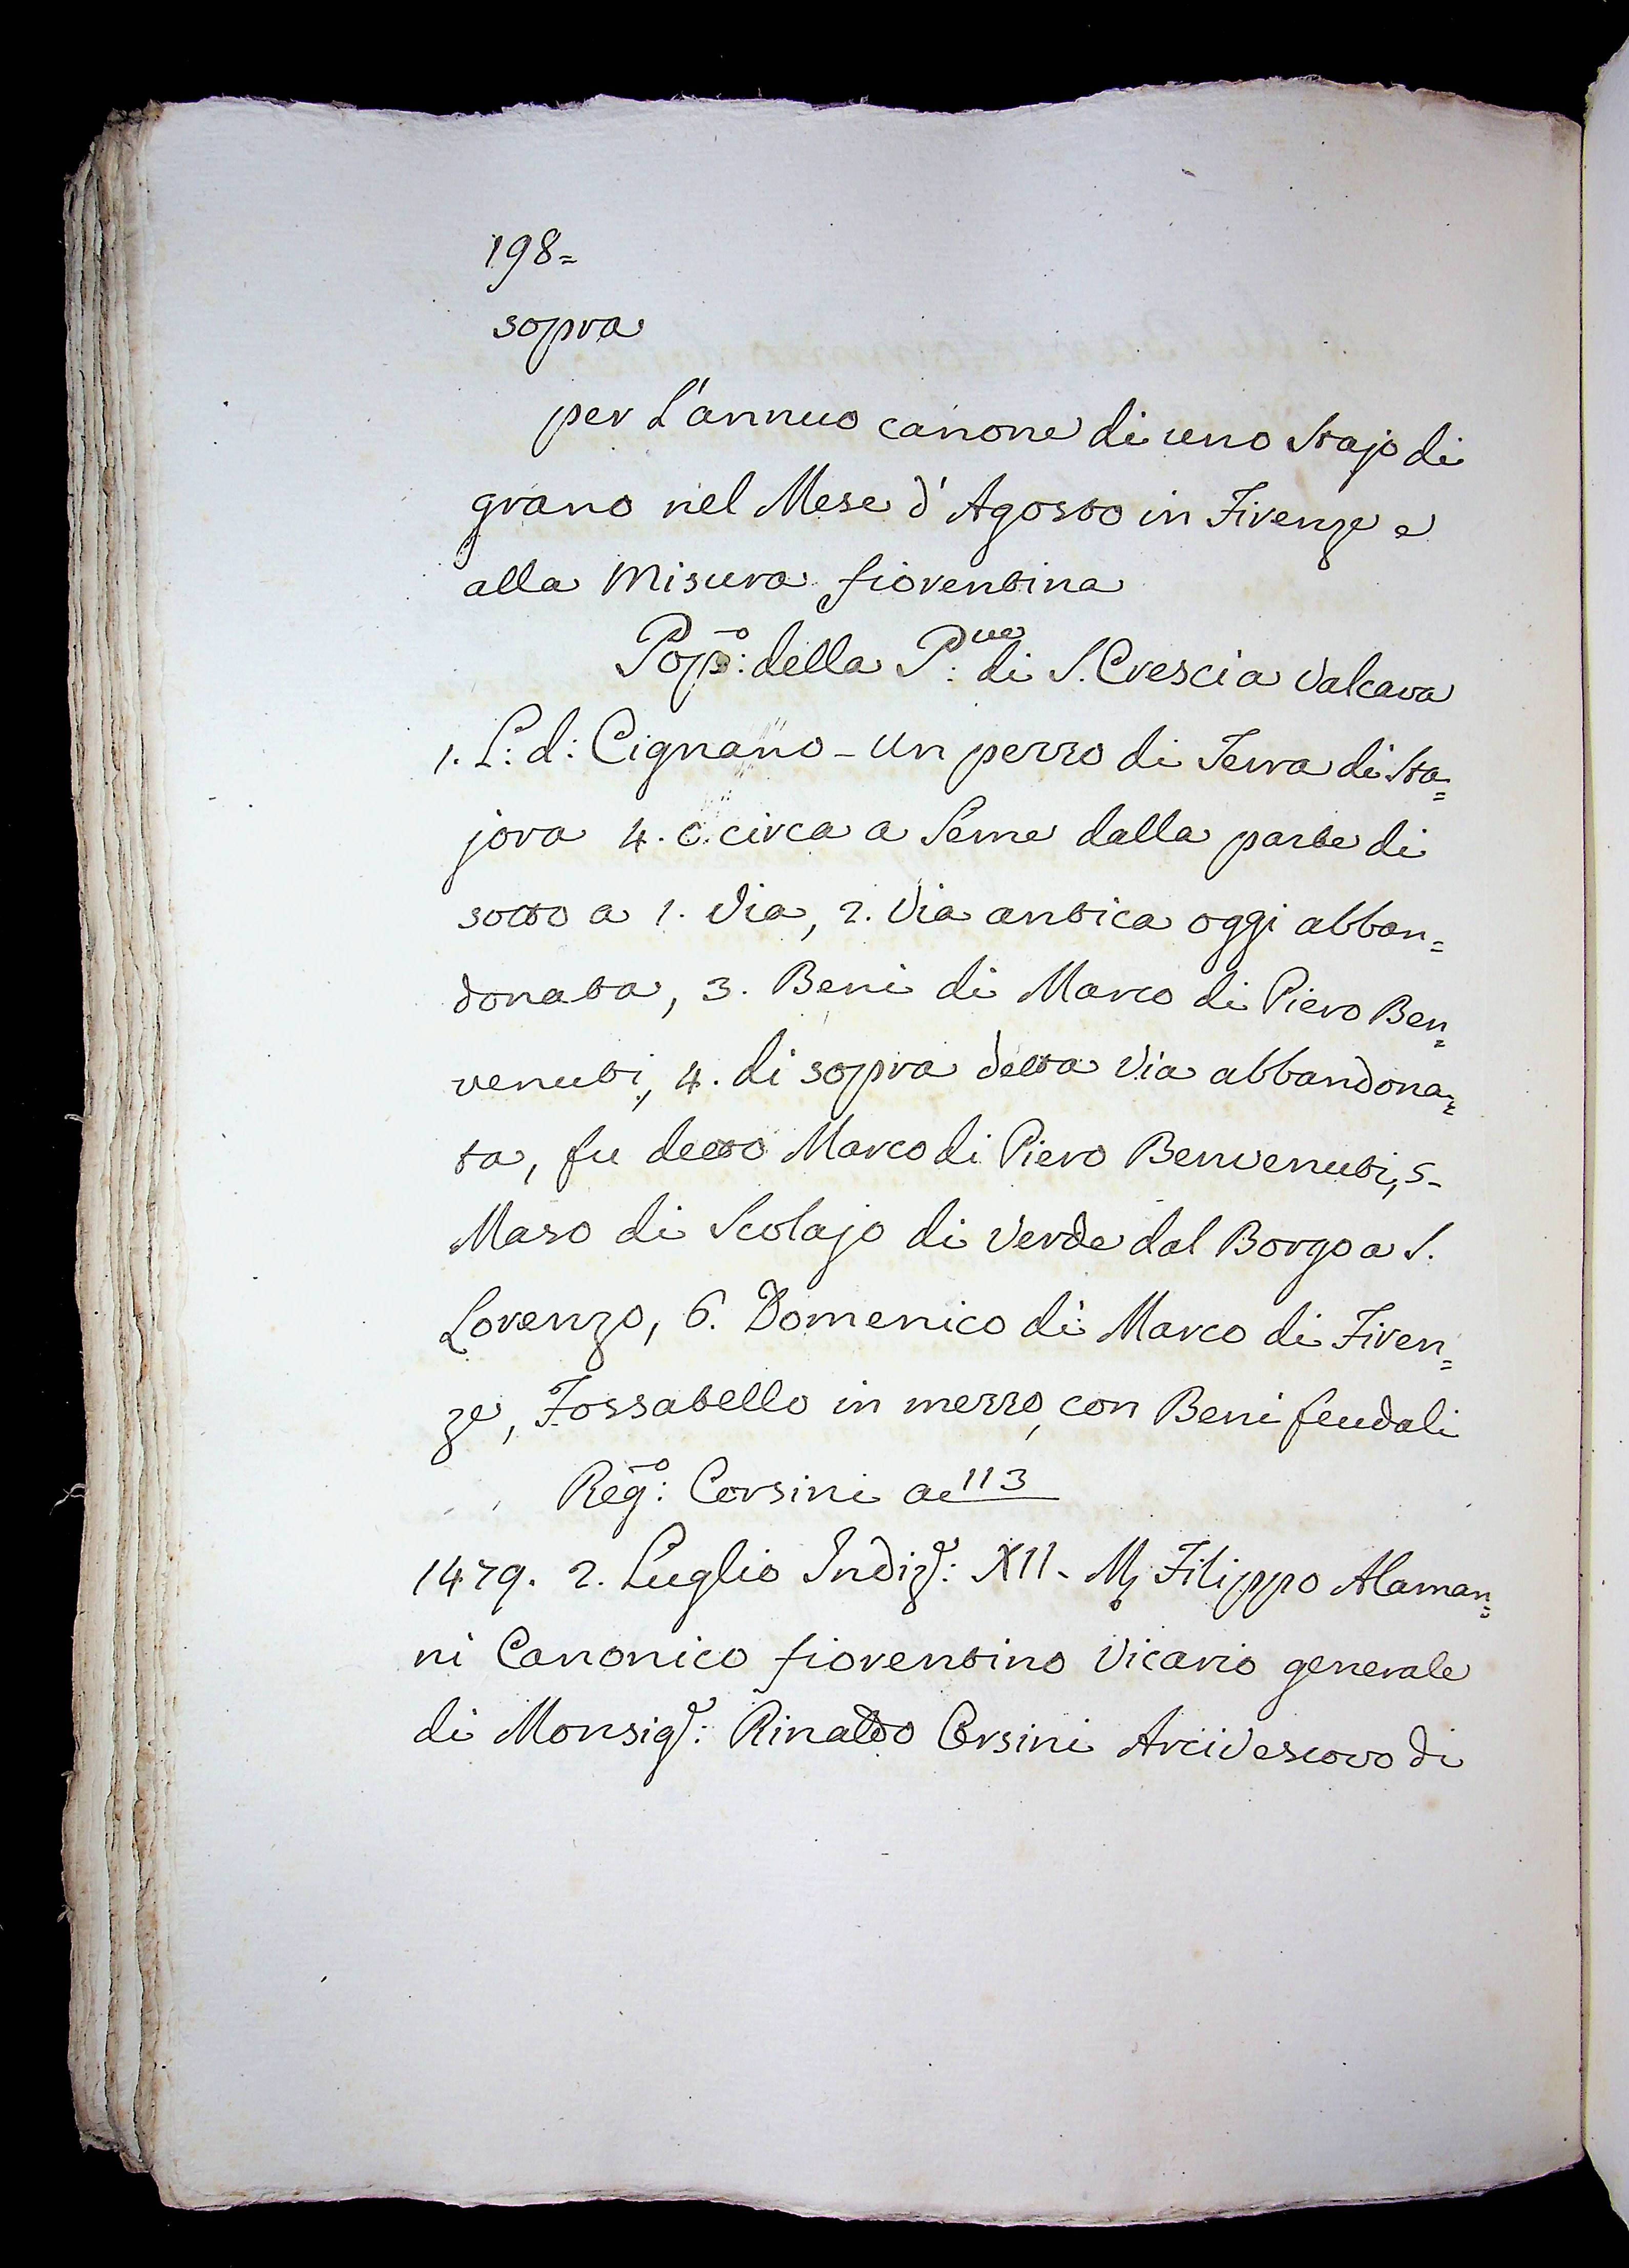 198=
sopra
per L'annuo canone di uno Stajo di
grano nel Mese d'Agosto in Firenze e
alla Misura fiorentina
Pop̄o: della P:ue di S. Cresci a Valcava
1. L: d: Cignano - Un pezzo di Terra di Sta=
jora 4. c circa a Seme dalla parte di
sotto a 1. Via, 2. Via antica oggi abban=
donata, 3. Beni di Marco di Piero Ben=
venuti, 4. di sopra detta Via abbandona=
ta, fu detto Marco di Piero Benvenuti, 5-
Maso di Scolajo di Verde dal Borgo a S.
Lorenzo, 6. Domenico di Marco di Firen=
ze, Fossatello in mezzo, con Beni feudali
Reg̅o: Corsini ac 113
1479. 2. Luglio Indiz̃: XII - Mͬ Filippo Alaman=
ni Canonico fiorentino Vicario generale
di Monsigͬ: Rinaldo Orsini Arcivescovo di